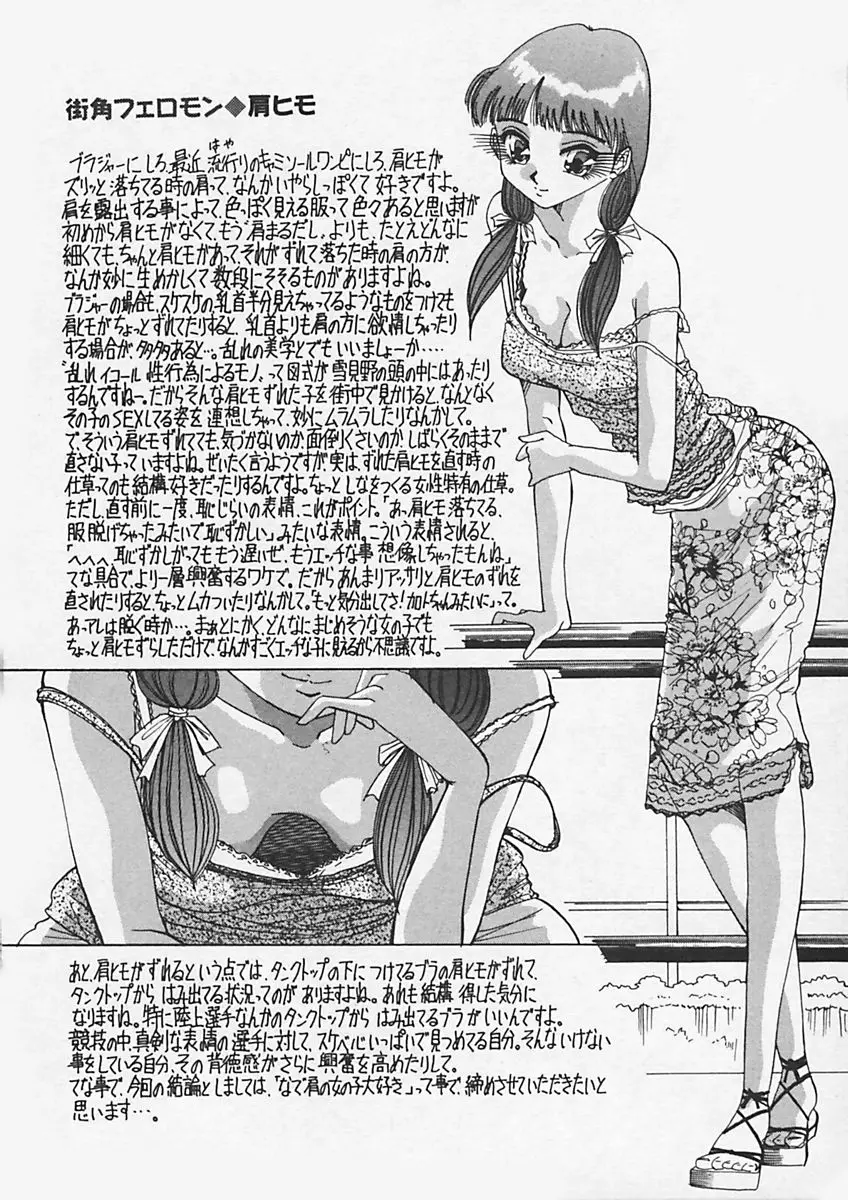 街角フェロモン◆肩ヒモ
ブラジャーにしろ、最近流行りのキャミソールワンピにしろ、肩ヒモが
はや
ズリッと落ちてる時の肩って、なんかいやらしっぽくて好きですよ。
肩を露出する事によって、色っぽく見える服って色々あると思いますが
初めから肩ヒモがなくて、もう“肩まるだし”よりも、たとえどんなに
細くても、ちゃんと肩ヒモがあって、それがずれて落ちた時の肩の方が、
なんか妙に生めかしくて数段にそそるものがありますよね。
ブラジャーの場合も、スケスケの、乳首半分見えちゃってるようなものをつけても
肩ヒモがちょっとずれてたりすると、乳首よりも肩の方に欲情しちゃったり
する場合が多々あると…。乱れの美学とでもいいましょーか‥‥
“乱れイコール性行為によるモノ”って図式が雪見野の頭の中にはあったり
するんですねー。だからそんな肩ヒモずれた子を街中で見かけると、なんとなく
その子のSEXしてる姿を連想しちゃって、妙にムラムラしたりなんかして。
で、そういう肩ヒモずれてても、気づかないのか、面倒りくさいのか、しばらくそのままで
直さない子っていますよね。ぜいたく言うようですが実は、ずれた肩ヒモを直す時の
仕草ってのも結構好きだったりするんですよ。ちょっとしなをつくる女性特有の仕草。
ただし、直す前に一度、恥じらいの表情、これがポイント。「あっ、肩ヒモ落ちてる、
服脱げちゃったみたいで恥ずかしい」みたいな表情。こういう表情されると、
「へへへ、恥ずかしがってももう遅いぜ、もうエッチな事想像しちゃったもんね」
てな具合で、より一層興奮するワケで。だからあんまりアッサリと肩ヒモのずれを
直されたりすると、ちょっとムカついたりなんかして。“もっと気分出してさ!カトちゃんみたいに”って。
あ、アレは脱ぐ時か…。まぁとにかくどんなにまじめそうな女の子でも
ちょっと肩ヒモずらしただけで、なんかすごくエッチな子に見えるから不思議ですよ。
あと、肩ヒモがずれるという点では、タンクトップの下につけてるブラの肩ヒモがずれて、
タンクトップからはみ出てる状況ってのがありますよね。あれも結構得した気分に
なりますね。特に陸上選手なんかのタンクトップからはみ出てるブラがいいんですよ。
競技の中、真剣な表情の選手に対して、スケベ心いっぱいで見つめてる自分。そんないけない
事をしている自分、その背徳感がさらに興奮を高めたりして。
てな事で、今回の結論としましては、「なで肩の女の子大好き」って事で、締めさせていただきたいと
思います…。